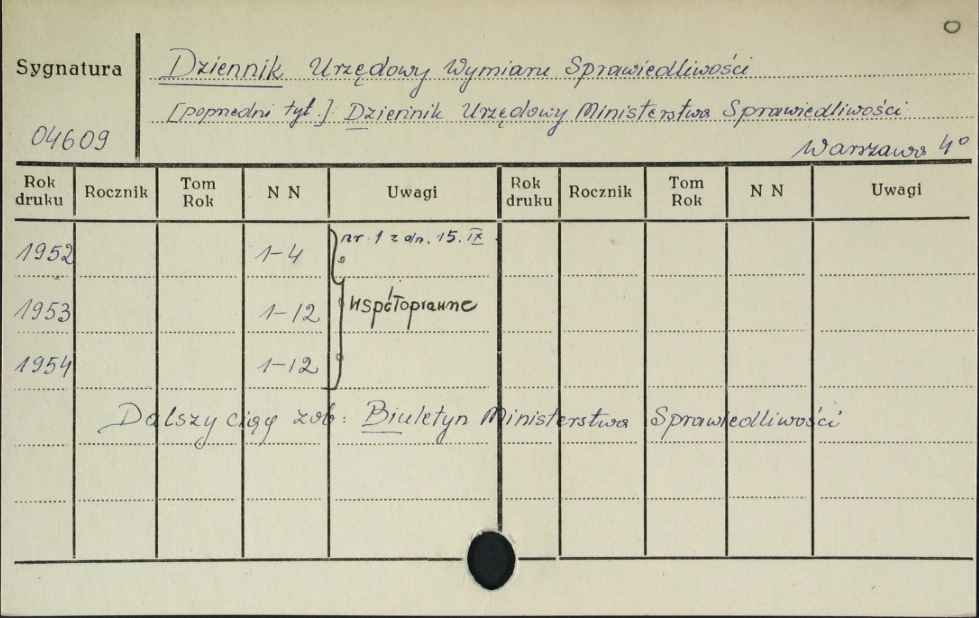 Sygnatura
Dziennik Urzędowy Wymiaru Sprawiedliwości
[poprzedni tyt.] Dziennik Urzędowy Ministerstwa Sprawiedliwości
04609
Warszawa 4°
Rok druku Rocznik Tom Rok N N Uwagi Rok druku Rocznik Tom Rok N N Uwagi
1952 1-4 nr. 1 z dn. 15. IX
1953 1-12 Współoprawne
1954 1-12
Dalszy ciąg zob: Biuletyn Ministerstwa Sprawiedliwości